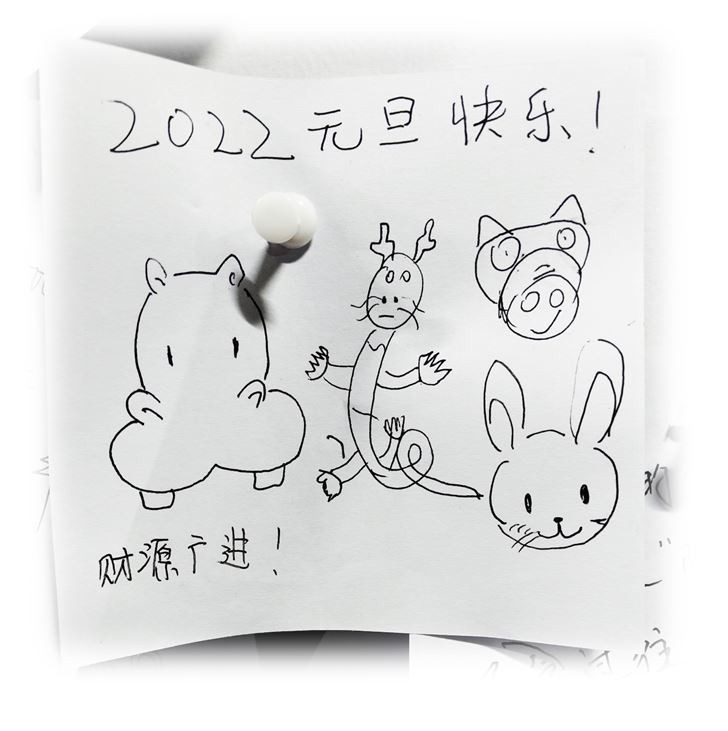 2022元旦快乐!
财源广进!